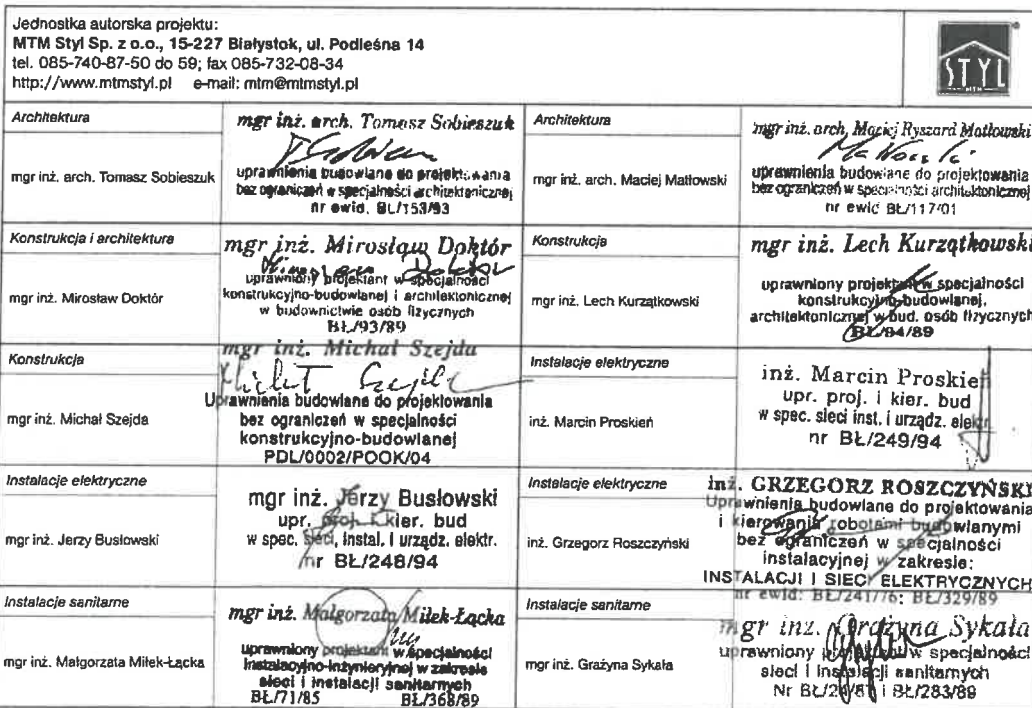 Jednostka autorska projektu:
MTM Styl Sp. z o.o., 15-227 Białystok, ul. Podleśna 14
tel. 085-740-87-50 do 59; fax 085-732-08-34
http://www.mtmstyl.pl e-mail: mtm@mtmstyl.pl
STYL
MTM
Architektura
mgr inż. arch. Tomasz Sobieszuk
mgr inż. arch. Tomasz Sobieszuk
uprawnienia budowlane do projektowania
bez ograniczeń w specjalności architektonicznej
nr ewid. BŁ/153/93
Architektura
mgr inż. arch. Maciej Matłowski
mgr inż. arch. Maciej Ryszard Matłowski
uprawnienia budowlane do projektowania
bez ograniczeń w specjalności architektonicznej
nr ewid BŁ/117/01
Konstrukcja i architektura
mgr inż. Mirosław Doktór
mgr inż. Mirosław Doktór
Mirosław Doktór
uprawniony projektant w specjalności
konstrukcyjno-budowlanej i architektonicznej
w budownictwie osób fizycznych
BŁ/93/89
Konstrukcja
mgr inż. Lech Kurzątkowski
mgr inż. Lech Kurzątkowski
uprawniony projektant w specjalności
konstrukcyjno-budowlanej,
architektonicznej w bud. osób fizycznych
BŁ/94/89
Konstrukcja
mgr inż. Michał Szejda
mgr inż. Michał Szejda
Michał Szejda
Uprawnienia budowlane do projektowania
bez ograniczeń w specjalności
konstrukcyjno-budowlanej
PDL/0002/POOK/04
Instalacje elektryczne
inż. Marcin Proskień
inż. Marcin Proskień
upr. proj. i kier. bud
w spec. sieci inst. i urządz. elektr.
nr BŁ/249/94
Instalacje elektryczne
mgr inż. Jerzy Busłowski
mgr inż. Jerzy Busłowski
upr. proj. i kier. bud
w spec. sieci, instal. i urządz. elektr.
nr BŁ/248/94
Instalacje elektryczne
inż. Grzegorz Roszczyński
inż. GRZEGORZ ROSZCZYŃSKI
Uprawnienia budowlane do projektowania
i kierowania robotami budowlanymi
bez ograniczeń w specjalności
instalacyjnej w zakresie:
INSTALACJI I SIECI ELEKTRYCZNYCH
nr ewid: BŁ/241/76; BŁ/329/89
Instalacje sanitarne
mgr inż. Małgorzata Miłek-Łącka
mgr inż. Małgorzata Miłek-Łącka
uprawniony projektant w specjalności
instalacyjno-inżynieryjnej w zakresie
sieci i instalacji sanitarnych
BŁ/71/85 BŁ/368/89
Instalacje sanitarne
mgr inż. Grażyna Sykała
mgr inż. Grażyna Sykała
uprawniony projektant w specjalności
sieci i instalacji sanitarnych
Nr i BŁ/283/89